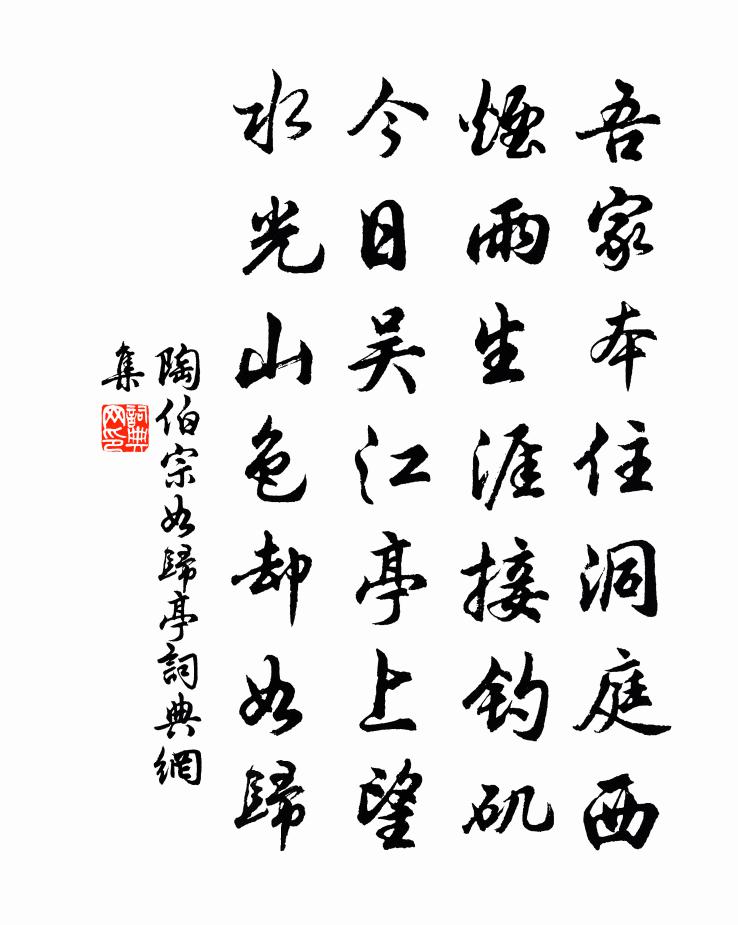 吾家本住洞庭西
煙雨生涯接钓矶
今日吴江亭上望
水光山色却如歸
陶伯宗如歸亭詞典網
集
詞典
网印